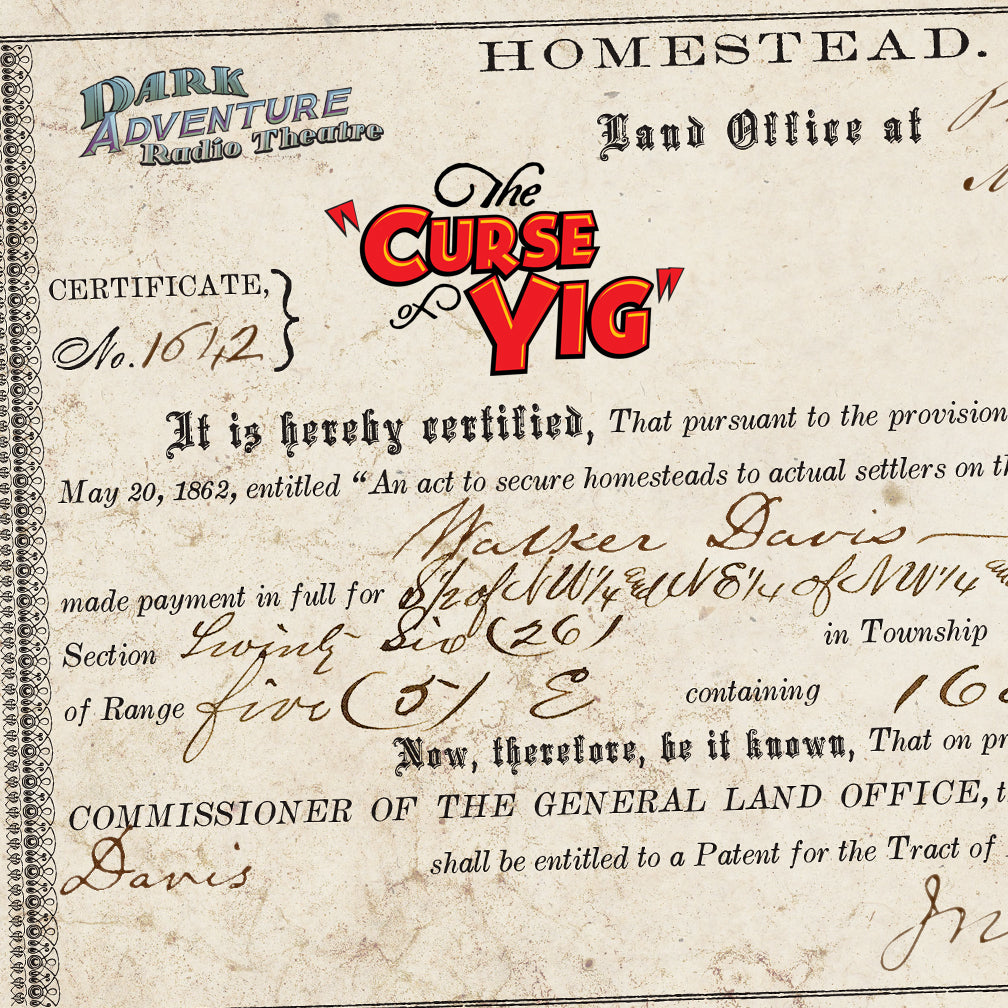 HOMESTEAD.
DARK
ADVENTURE
Radio Theatre
Land Office at
The
"CURSE
of YIG"
CERTIFICATE,
No. 1642
It is hereby certified, That pursuant to the provision
May 20, 1862, entitled “An act to secure homesteads to actual settlers on th
Walker Davis
made payment in full for S 1/2 of NW 1/4 and NE 1/4 of NW 1/4 and
Section Twenty Six (26) in Township
of Range five (5) E containing 160
Now, therefore, be it known, That on pr
COMMISSIONER OF THE GENERAL LAND OFFICE, t
Davis shall be entitled to a Patent for the Tract of